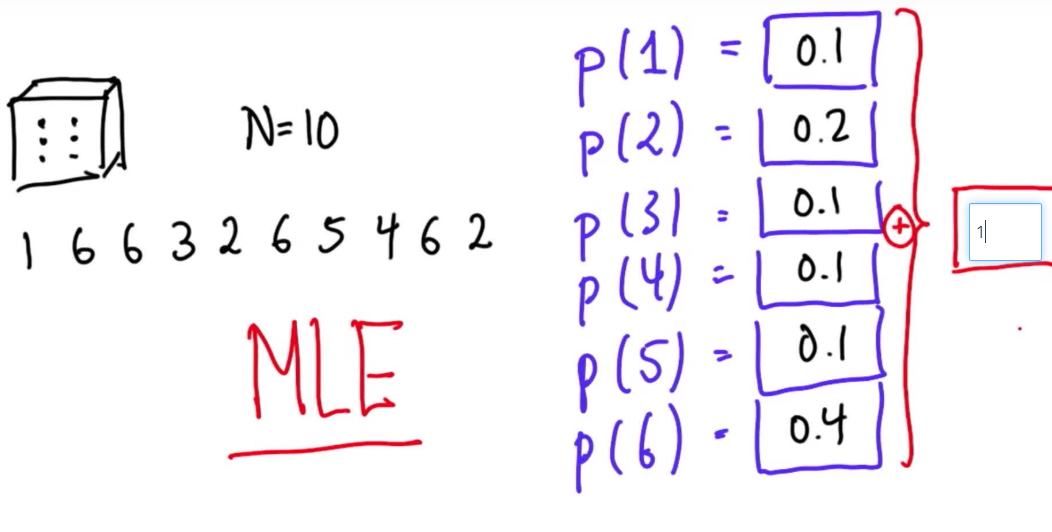 N=10
1 6 6 3 2 6 5 4 6 2
MLE
p(1) = 0.1
p(2) = 0.2
p(3) = 0.1
p(4) = 0.1
p(5) = 0.1
p(6) = 0.4
+
1